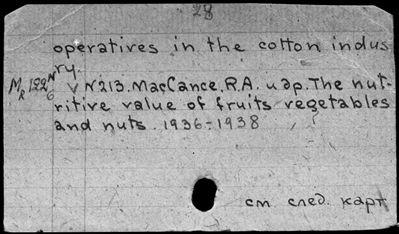 28
operatives in the cotton indus
try.
MR 122/6 v N213. MacCance, R.A. и др. The nut-
ritive value of fruits vegetables
and nuts. 1936-1938
см след. карт